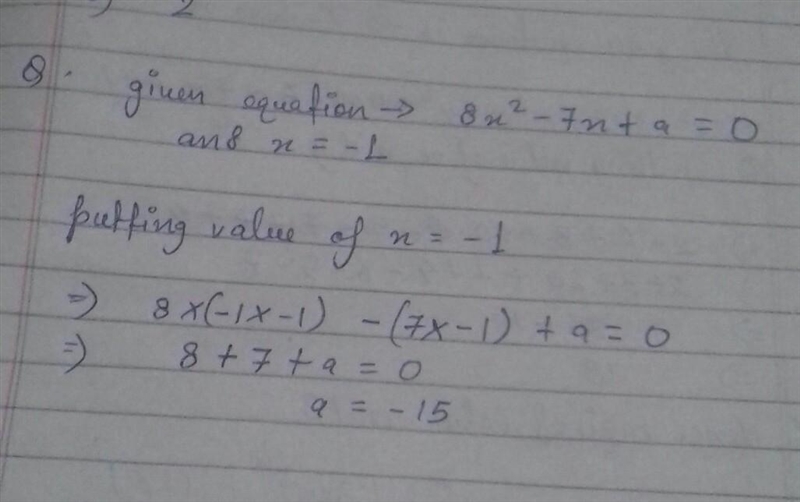 2
Q. given equation → 8x² - 7x + a = 0
ans x = -1
putting value of x = -1
⇒ 8×(-1×-1) - (7×-1) + a = 0
⇒ 8 + 7 + a = 0
a = -15